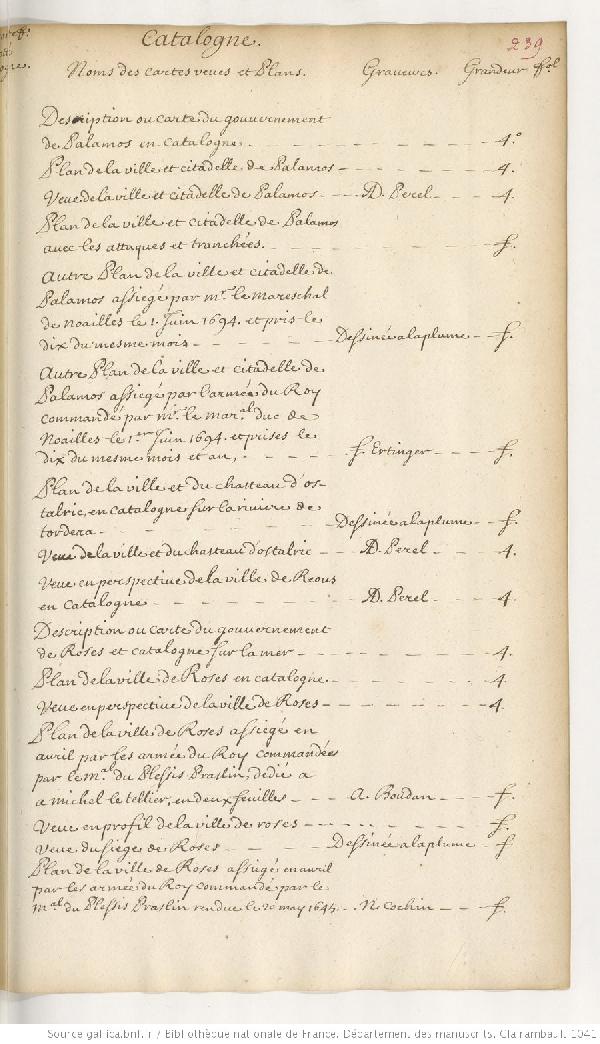 Catalogne.
239
Noms des cartes veues et Plans. Graveurs. Grandeur fol
Description ou carte du gouvernement
de Palamos en Catalogne. 4.º
Plan de la ville et citadelle de Palamos 4.
Veue de la ville et citadelle de Palamos AD. Perel 4.
Plan de la ville et citadelle de Palamos
avec les attaques et tranchées. f.
Autre Plan de la ville et citadelle de
Palamos assiegé par mr. le mareschal
de Noailles le 1. Juin 1694. et pris le
dix du mesme mois Dessinée a la plume f.
Autre Plan de la ville et citadelle de
Palamos assiegé par l'armée du Roy
commandé par mr. le maral. duc de
Noailles le 1er Juin 1694. et prises le
dix du mesme mois et an, f. Ertinger f.
Plan de la ville et du chasteau d'os-
talric, en catalogne sur la riviere de
tordera Dessinée a la plume f.
Veue de la ville et du chasteau d'ostalric AD. Perel 4.
Veue en perspective de la ville de Reous
en Catalogne AD. Perel 4.
Description ou carte du gouvernement
de Roses et catalogne sur la mer 4.
Plan de la ville de Roses en catalogne. 4.
Veue en perspective de la ville de Roses 4.
Plan de la ville de Roses assiegé en
avril par les armée du Roy commandée
par le mal. du Plessis Praslin, dedié a
a michel le tellier, en deux feuilles a. Boudan f.
Veue en profil de la ville de roses f.
Veue du siege de Roses Dessinée a la plume f
Plan de la ville de Roses assiegé en avril
par les armée du Roy commandé par le
mal. du Plessis Praslin rendue le 20 may 1645 N. Cochin f.
Source gallica.bnf.fr / Bibliothèque nationale de France. Département des manuscrits. Clairambault 1041